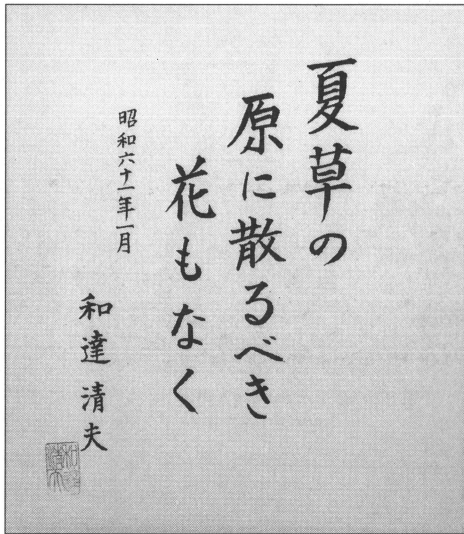 夏草の
原に散るべき
花もなく
昭和六十一年一月
和達清夫